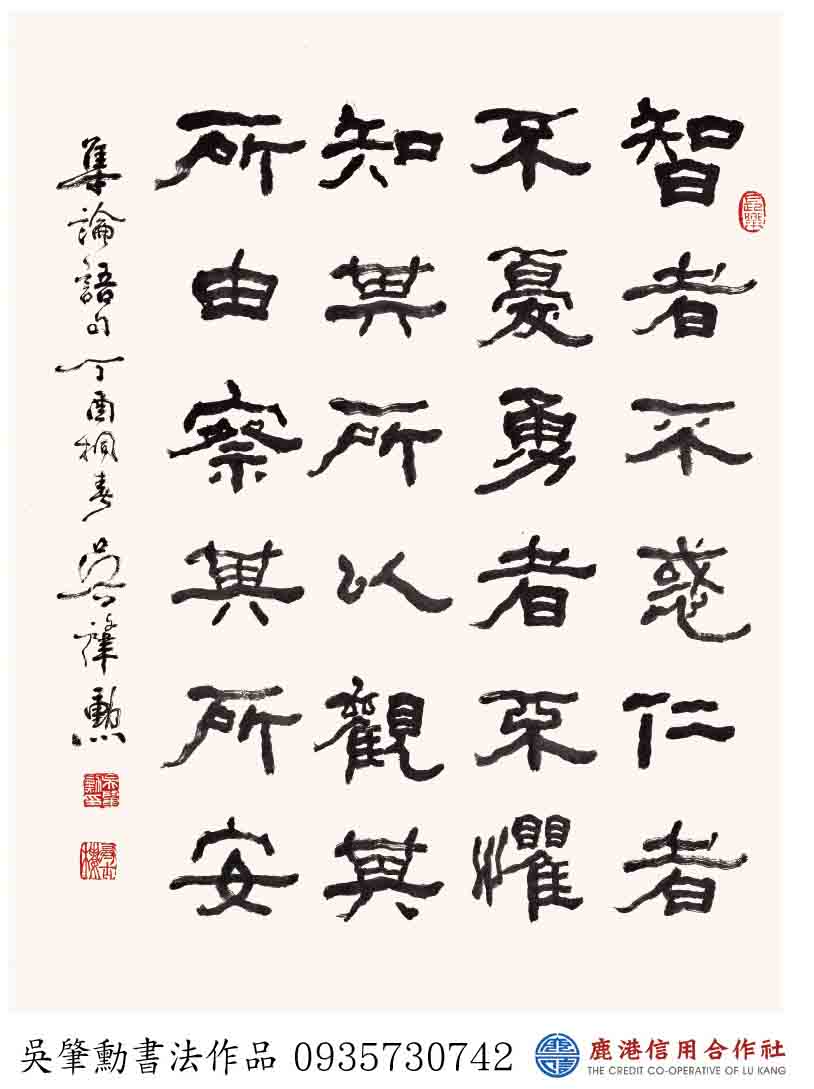 智者不惑仁者
不憂勇者不懼
知其所以觀其
所由察其所安
集論語句丁酉桐春吳肇勳
吳肇勳書法作品 0935730742
鹿港信用合作社
THE CREDIT CO-OPERATIVE OF LU KANG